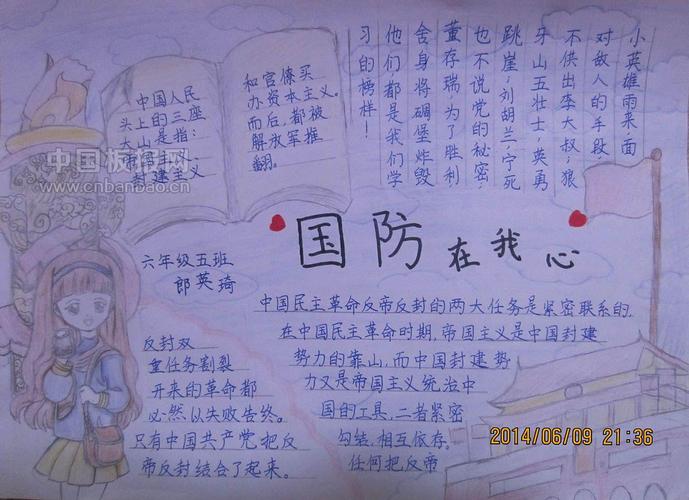 中国人民
头上的三座
大山是指：
帝国主义、
封建主义
和官僚买
办资本主义。
而后，都被
解放军推
翻。
小英雄雨来，面
对敌人的手段，
不供出李大叔；狼
牙山五壮士，英勇
跳崖；刘胡兰，宁死
也不说党的秘密；
董存瑞，为了胜利，
舍身将碉堡炸毁
他们都是我们学
习的榜样！
中国板报网
www.cnbanbao.cn
国防在我心
六年级五班
郎英琦
中国民主革命反帝反封的两大任务是紧密联系的.
在中国民主革命时期，帝国主义是中国封建
势力的靠山，而中国封建势
力又是帝国主义统治中
国的工具，二者紧密
勾结，相互依存。
任何把反帝
反封双
重任务割裂
开来的革命都
必然以失败告终。
只有中国共产党把反
帝反封结合了起来。
2014/06/09 21:36